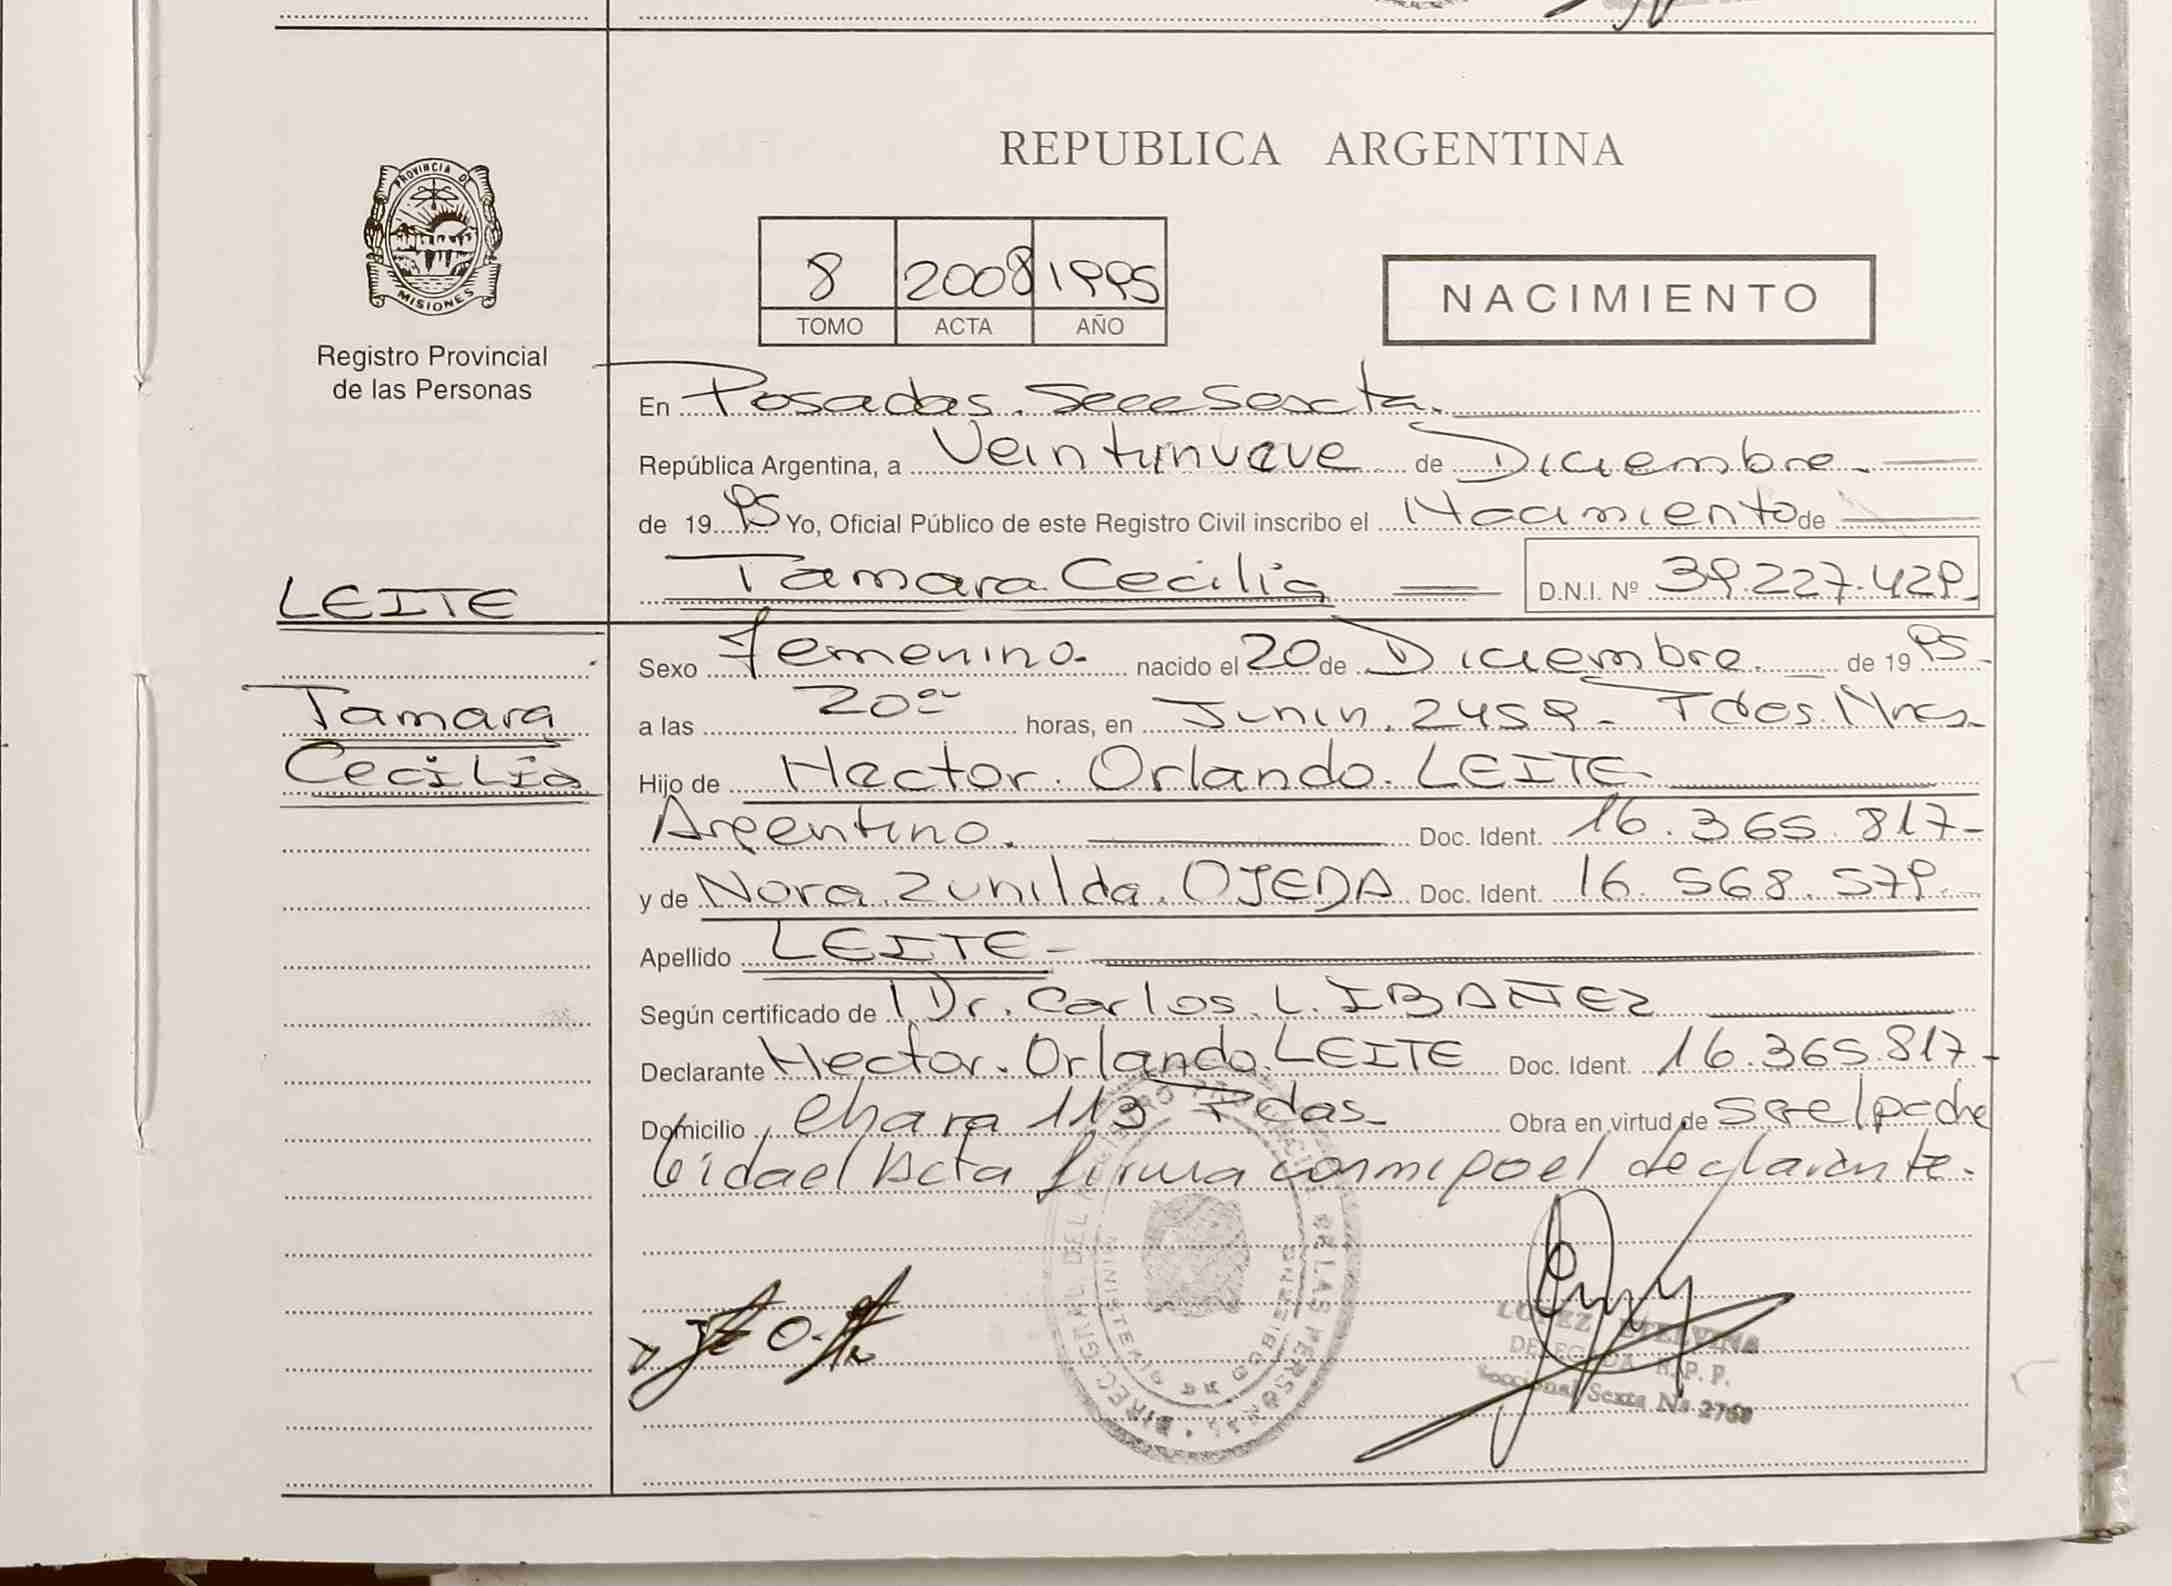 REPUBLICA ARGENTINA
PROVINCIA DE
MISIONES
Registro Provincial
de las Personas
8 2008 1995
TOMO ACTA AÑO
NACIMIENTO
En Posadas. Secc Sexta.
República Argentina, a Veintinueve de Diciembre.
de 1995 Yo, Oficial Público de este Registro Civil inscribo el Nacimiento de
Tamara Cecilia D.N.I. Nº 39.227.429
LEITE
Tamara
Cecilia
Sexo Femenino. nacido el 20 de Diciembre. de 1995.
a las 20 horas, en Junin. 2459.
Hijo de Hector. Orlando. LEITE
Argentino. Doc. Ident. 16.365.817-
y de Nora. Zunilda. OJEDA Doc. Ident. 16.568.579.
Apellido LEITE-
Según certificado de Dr. Carlos. L. IBAÑEZ
Declarante Hector. Orlando. LEITE Doc. Ident. 16.365.817-
Domicilio Chara 113 Pdas- Obra en virtud de ser el padre
leida el Acta firma conmigo el declarante.
DE LAS PERSONAS
DE GOBIERNO
LOPEZ ETELVINA
DELEGADA R.P.P.
Seccional Sexta Nº